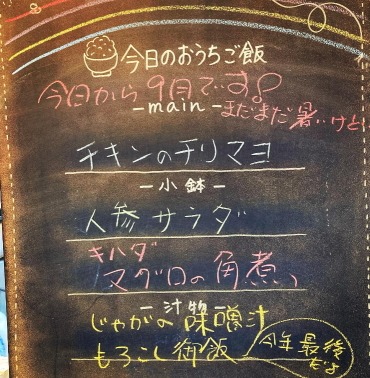 今日のおうちご飯
今日から9月です♪
-main-
まだまだ暑いけど
チキンのチリマヨ
-小鉢-
人参サラダ
キハダ
マグロの角煮、
-汁物-
じゃがの味噌汁
もろこし御飯
今年最後
だよ